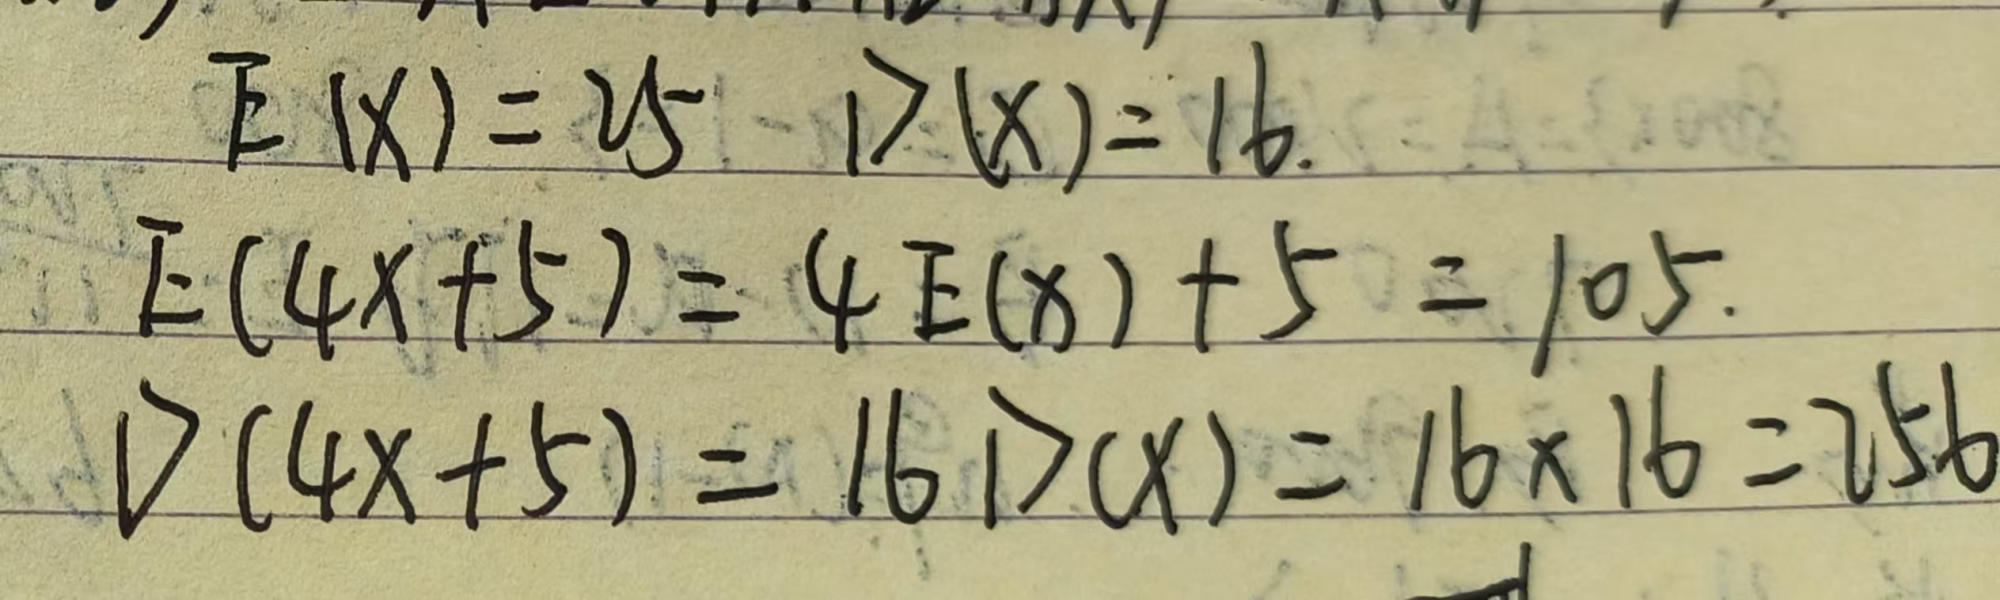 E(X) = 25 D(X) = 16.
E(4X+5) = 4E(X) + 5 = 105.
D(4X+5) = 16D(X) = 16×16 = 256